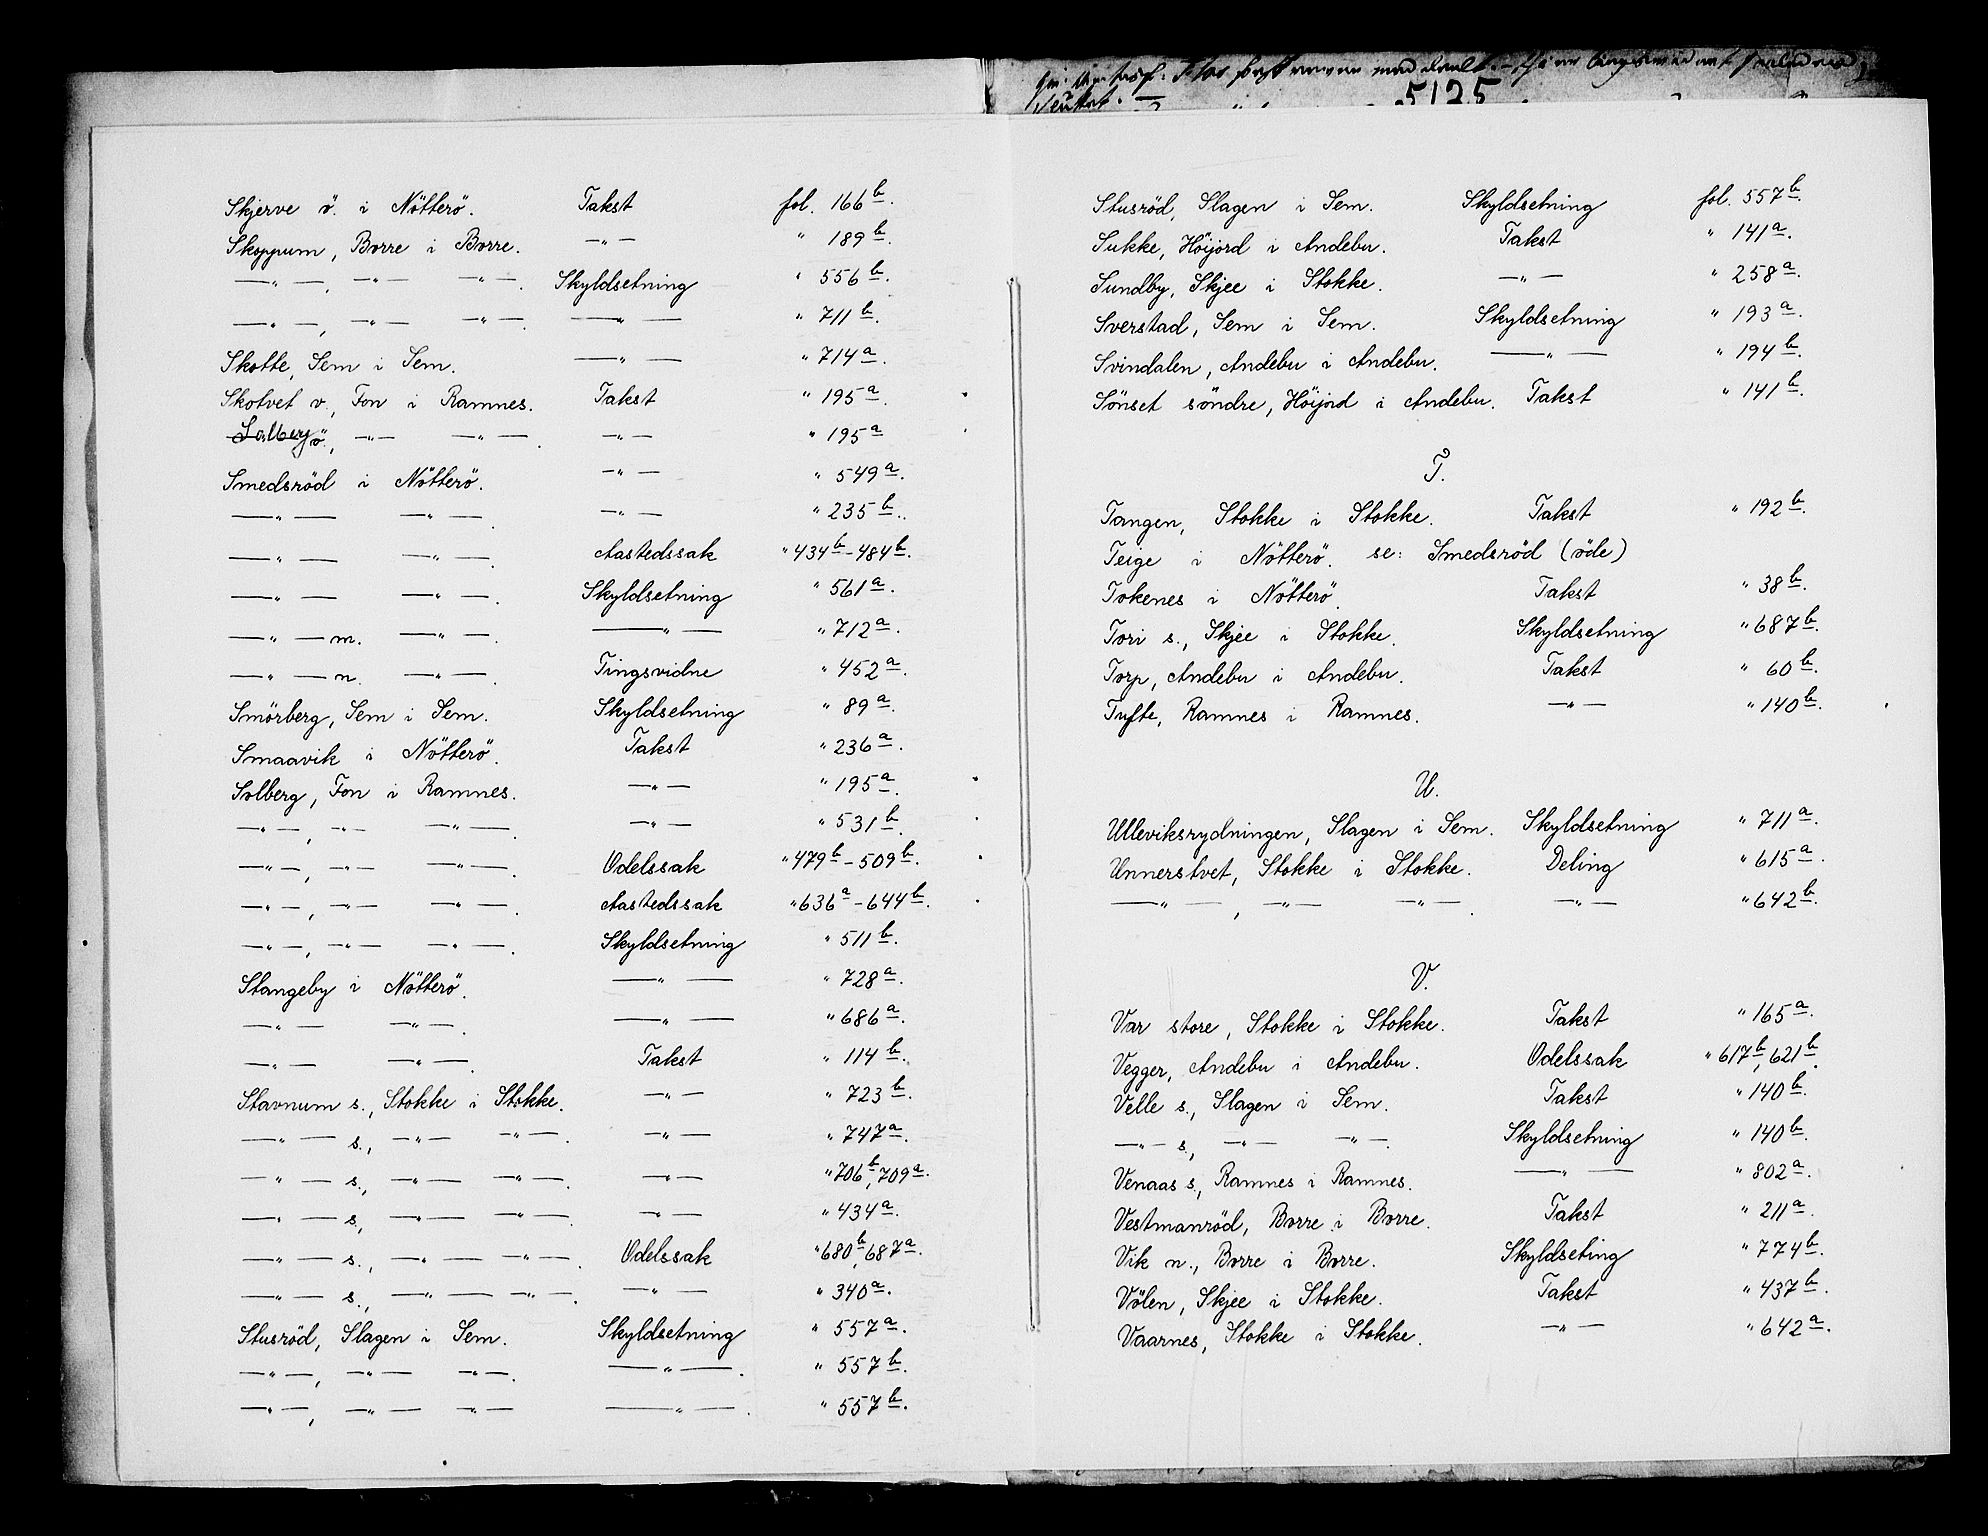 5125
Skjerve ö. i Nötterö. Takst fol. 166 b.
Skoppum, Borre i Borre. —"— " 189 b.
—"—, —"— —"—. Skyldsetning " 556 b.
—"—, —"— —"—. —"— " 711 b.
Skotte, Sem i Sem. —"— " 714 a.
Skotvet v., Fon i Ramnes. Takst " 195 a.
Solberg ö., —"— —"—. —"— " 195 a
Smedsröd i Nötterö. —"— " 549 a.
—"— —"—. —"— " 235 b.
—"— —"—. Aastedssak " 434 b - 484 b.
—"— —"—. Skyldsetning " 561 a.
—"— m. —"—. —"— " 712 a.
—"— n. —"—. Tingsvidne " 452 a.
Smörberg, Sem i Sem. Skyldsetning " 89 a.
Smaavik i Nötterö. Takst " 236 a.
Solberg, Fon i Ramnes. —"— " 195 a.
—"—, —"— —"—. —"— " 531 b.
—"—, —"— —"—. Odelssak " 479 b - 509 b.
—"—, —"— —"—. Aastedssak " 636 a - 644 b.
—"—, —"— —"—. Skyldsetning " 511 b.
Stangeby i Nötterö. —"— " 728 a.
—"— —"—. —"— " 686 a.
—"— —"—. Takst " 114 b.
Stavnum s., Stokke i Stokke. —"— " 723 b.
—"— s., —"— —"—. —"— " 747 a.
—"— s., —"— —"—. —"— " 706 b, 709 a.
—"— s., —"— —"—. —"— " 434 a.
—"— s., —"— —"—. Odelssak " 680 b, 687 a.
—"— s., —"— —"—. —"— " 340 a.
Stusröd, Slagen i Sem. Skyldsetning " 557 a.
—"—, —"— —"—. —"—. " 557 b.
—"—, —"— —"— —"—. " 557 b.
Stusröd, Slagen i Sem. Skyldsetning fol. 557 b.
Sukke, Höijord i Andebu. Takst " 141 a.
Sundby, Skjee i Stokke. —"— " 258 a.
Sverstad, Sem i Sem. Skyldsetning " 193 a.
Svindalen, Andebu i Andebu. —"— " 194 b.
Sönset söndre, Höijord i Andebu. Takst " 141 b.
T.
Tangen, Stokke i Stokke. Takst " 192 b.
Teige i Nötterö. se: Smedsröd (öde)
Tokenes i Nötterö. Takst " 38 b.
Tori s., Skjee i Stokke. Skyldsetning " 687 b.
Torp, Andebu i Andebu. Takst " 60 b.
Tufte, Ramnes i Ramnes. —"— " 140 b.
U.
Ulleviksrydningen, Slagen i Sem. Skyldsetning " 711 a.
Unnerstvet, Stokke i Stokke. Deling " 615 a.
—"—, —"— —"—. —"— " 642 b.
V.
Var store, Stokke i Stokke. Takst " 165 a.
Vegger, Andebu i Andebu. Odelssak " 617 b, 621 b.
Velle s., Slagen i Sem. Takst " 140 b.
—"— s., —"— —"—. Skyldsetning " 140 b.
Venaas s., Ramnes i Ramnes. —"— " 802 a.
Vestmanröd, Borre i Borre. Takst " 211 a.
Vik n., Borre i Borre. Skyldseting " 774 b.
Völen, Skjee i Stokke. Takst " 437 b.
Vaarnes, Stokke i Stokke. —"— " 642 a.